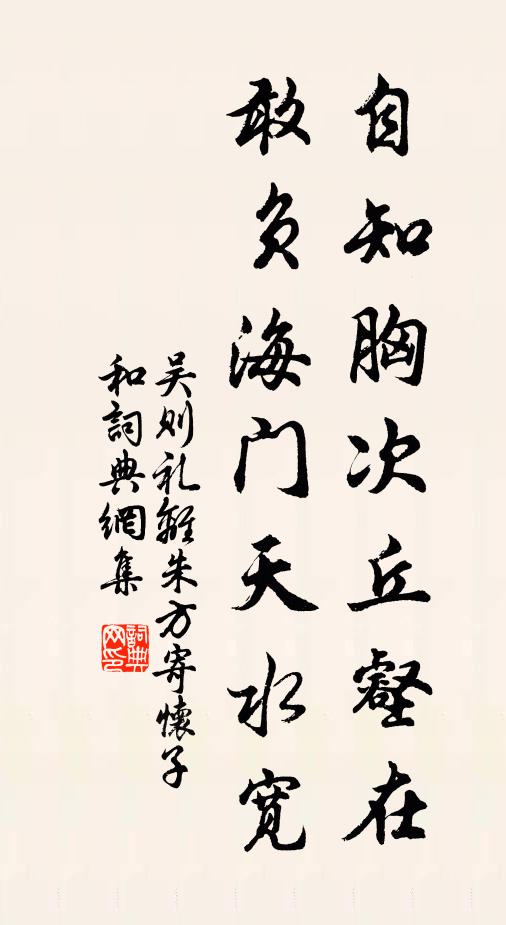 自知胸次丘壑在
敢负海门天水宽
吴则礼離朱方寄懷子
和詞典網集
詞典网印